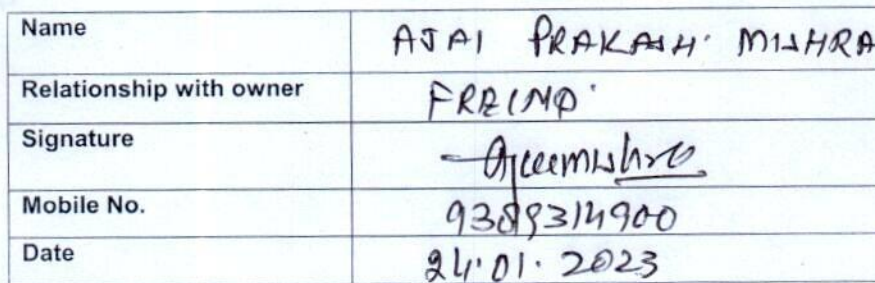 Name AJAI PRAKASH MISHRA
Relationship with owner FREIND
Signature Ajaimishra
Mobile No. 9389314900
Date 24.01.2023